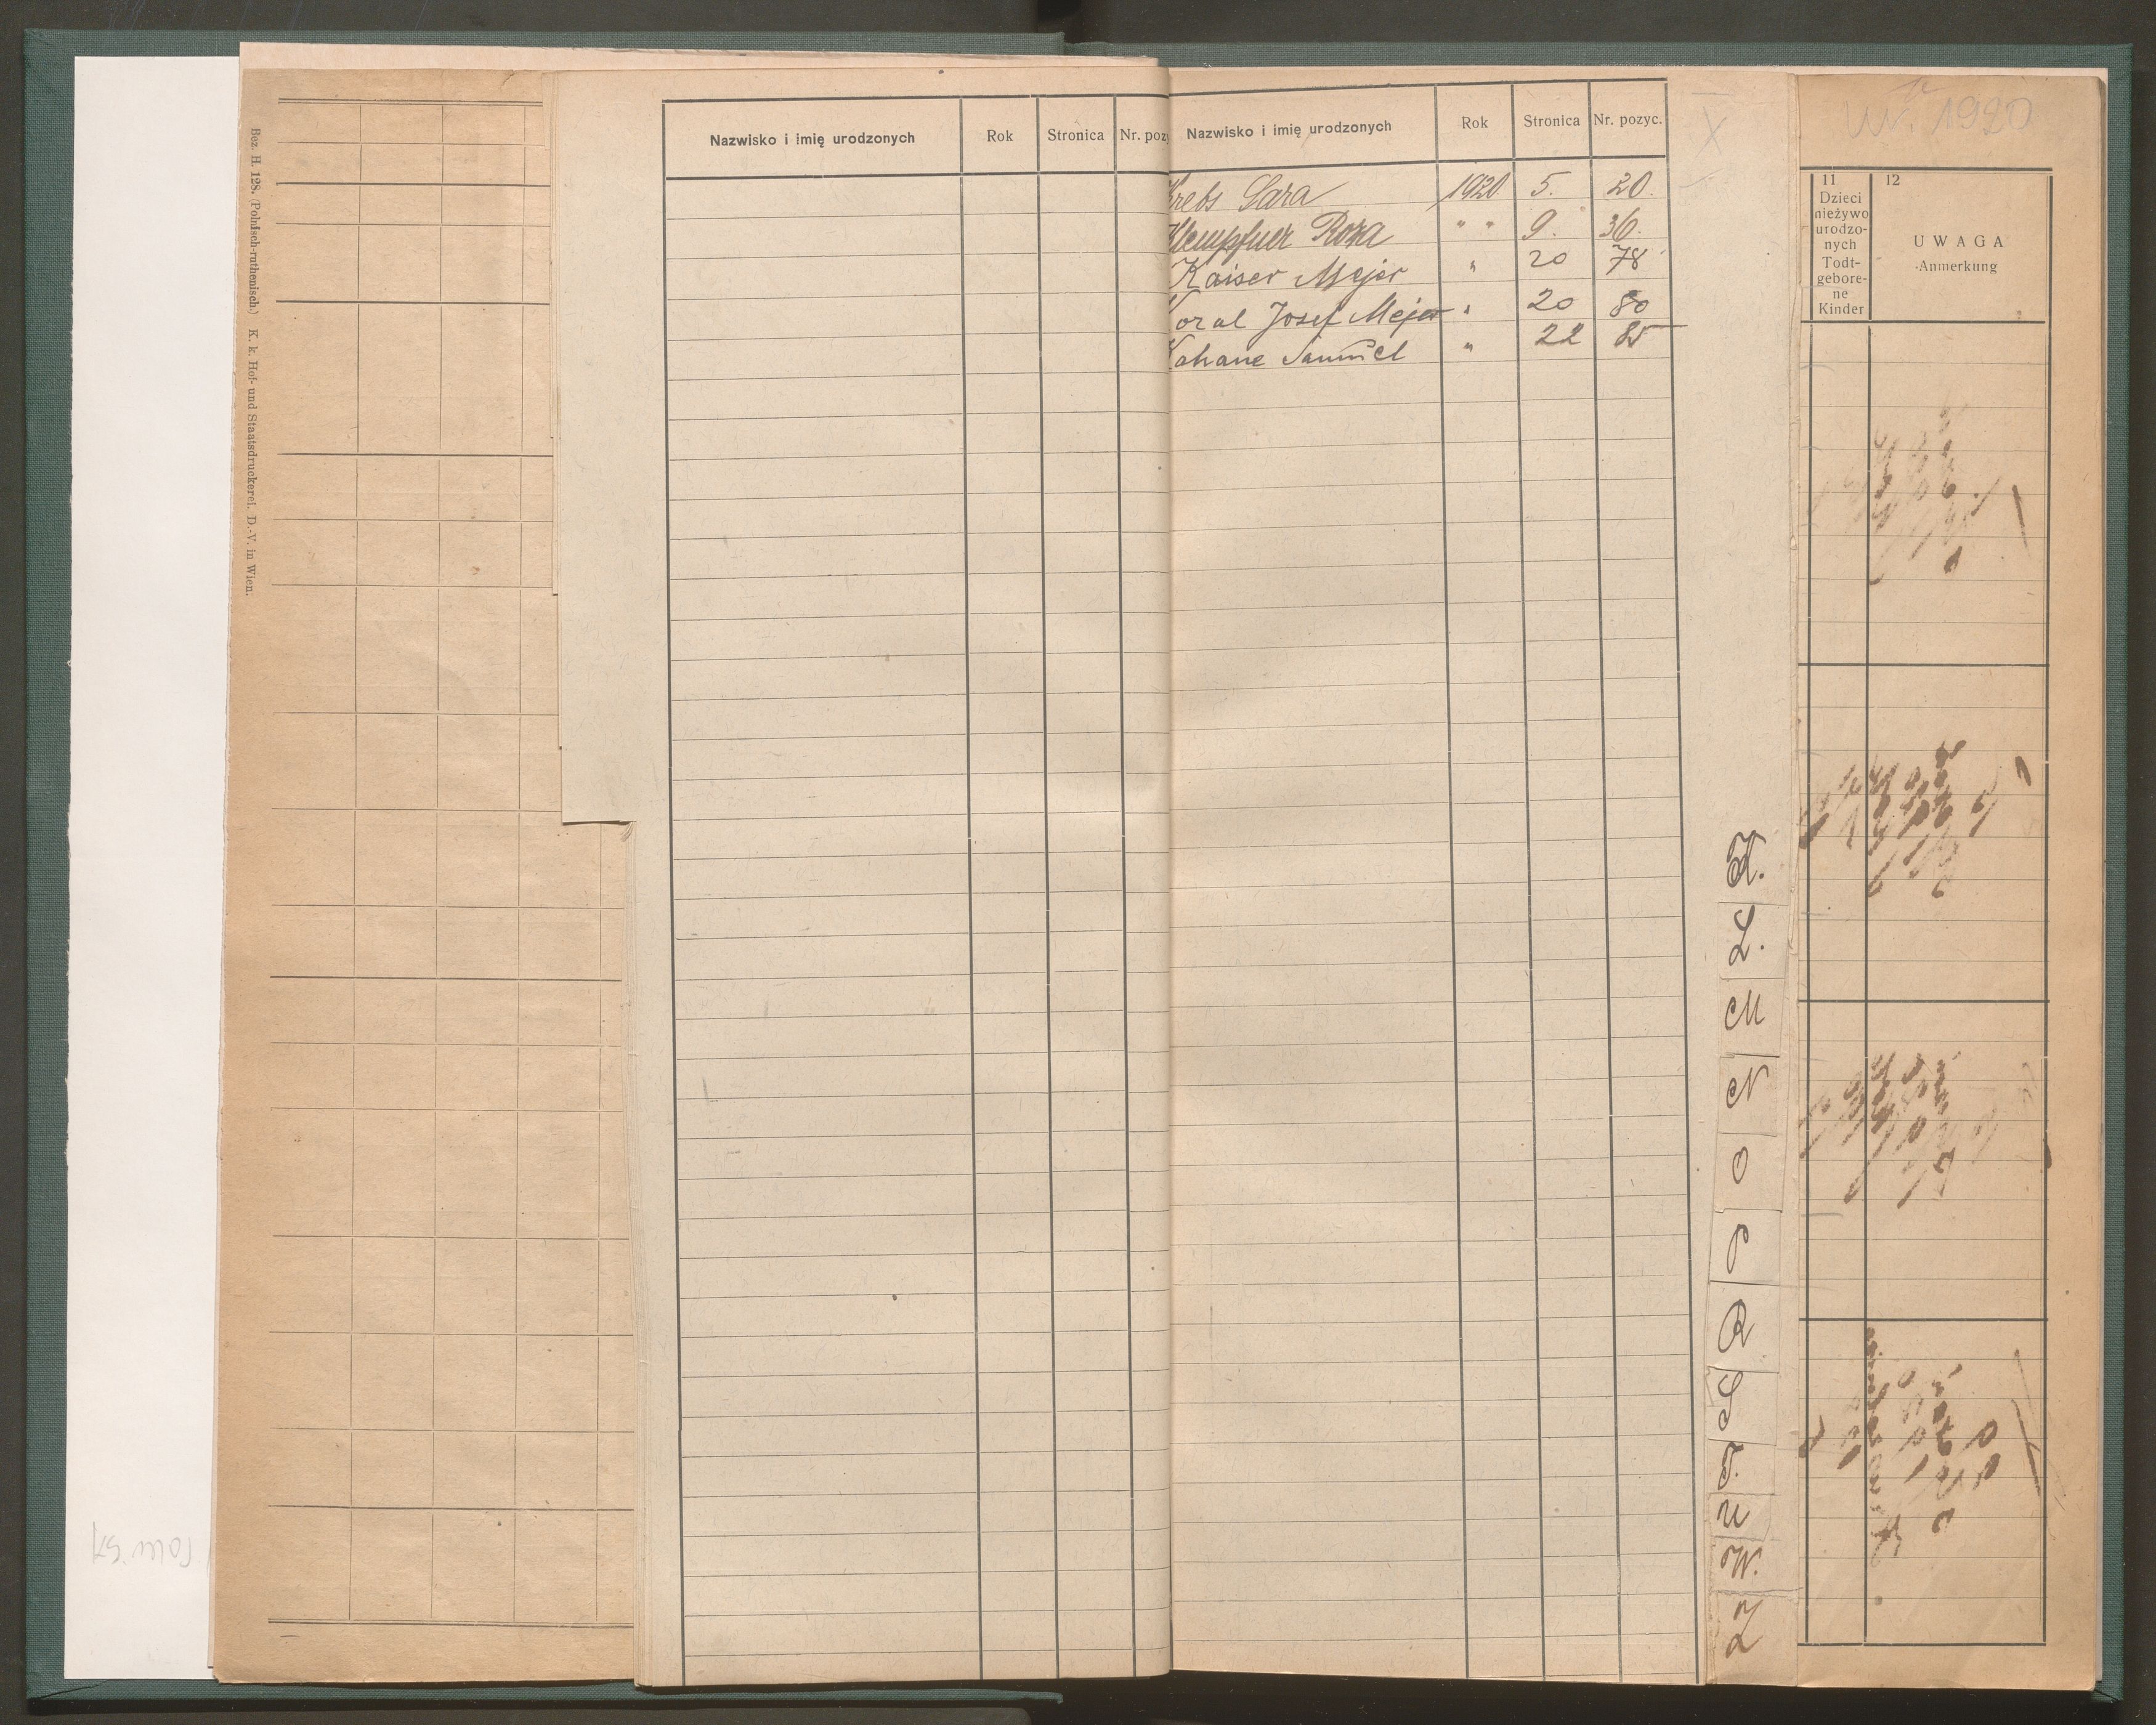 Bez. H. 128. (Polnisch-ruthenisch.) K. k. Hof- und Staatsdruckerei. D.-V. in Wien.
Nazwisko i imię urodzonych Rok Stronica Nr. poz
Nazwisko i imię urodzonych Rok Stronica Nr. pozyc.
Krebs Sara 1920. 5. 20.
Klempfner Roza " " 9. 36.
Kaiser Mejer " 20 78
Koral Josef Mejer " 20 80
Kahane Samuel " 22 85
X
K.
L.
M
N
O
P
R
S
T.
U
W.
Z
1920
11 12
Dzieci nieżywo urodzo-nych
Todt-gebore-ne Kinder
UWAGA
Anmerkung